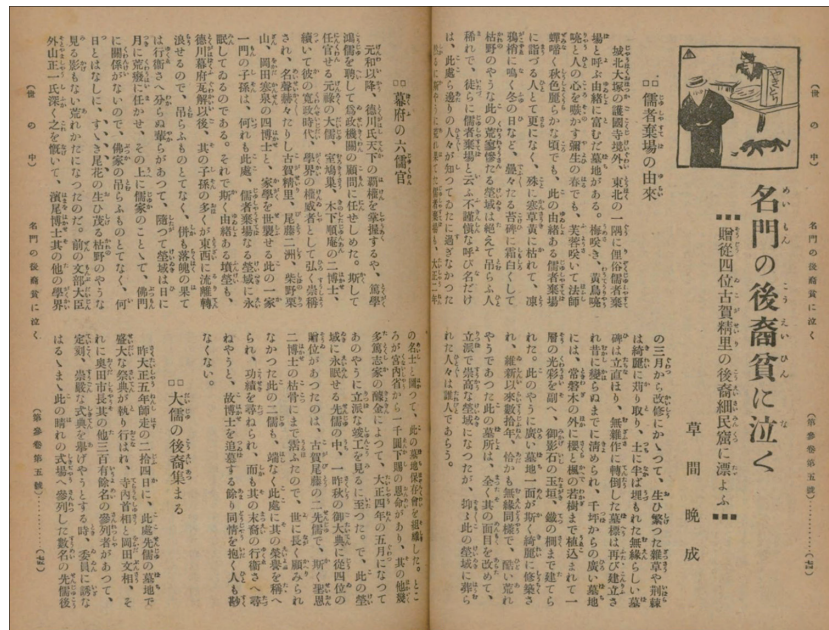 名門の後裔貧に泣く
名門の後裔貧に泣く
贈從四位古賀精里の後裔細民窟に漂ふ
草間晩成
儒者棄場の由來
城北大塚の護國寺境外、東北の一隅に俚俗儒者棄
場と呼ぶ由緒に富むだ墓地がある。梅咲き、黄鳥
と人の心を
蟬啼く秋色麗らかな頃でも、此の由緒ある儒者棄場
に詣づる人とて更になく、殊に寒草黄に枯れて、凍
鴉梢に鳴く冬の日など、壘々たる苔碑に霜白くして
枯野のやうな此の荒寥慘たる塋域は絶えて吊らふ人
稀れで、徒らに儒者棄場と云ふ不謹愼な呼び名だけ
は、此處ら邊りの人々が知つてゐたに過ぎなかつた
の三月から改修にかゝつて、生ひ繁つた雜草や荆棘
は綺麗に苅り取り、土に半ば埋もれた無縁らしい墓
碑は立直ほり、無雜作に轉倒した墓標は再び建立さ
れ昔に變らぬまでに淸められ、千坪からの廣い墓地
には、常磐木の外に櫻と楓の若樹まで植込まれて一
層の光彩を副へ、御影石の玉垣、鐵の棚まで建てら
れた。此のやうに廣い墓地一面が斯く綺麗に修築さ
れ、維新以來數拾年、恰かも無縁同樣で、酷い荒れ
やうであつた此の墓所は、全く其の面目を改めて、
立派で崇高な塋域になつたが、抑ま此の塋域に葬ら
れた人々は誰人であらう。
幕府の六儒官
元和以降、德川氏天下の覇權を掌握するや、篤學
鴻儒を聘して爲政機關の顧問に任せしめた。斯して
任官せる元祿の大儒、室鳩巢、木下順庵の二博士、
續いて彼の寛政時代、學界の權威者として弘く崇稱
され、名聲赫々たりし古賀精里、尾藤二洲、柴野栗
山、岡田寒泉の四博士と、家學を世襲せる此の一家
一門の子孫は、何れも此處、儒者棄場なる塋域に永
眠してゐるのである。それで斯く由緒ある墳塋も、
德川幕府瓦解以後、其の子孫の多くが東西に流離轉
浪せるので、吊らふものとてなく、併も落魄の果て
は行衞さへ分らぬ輩らがあつて、隨つて塋域は日に
月に荒癈に任かせ、その上に儒家のことゝて、佛門
に關係がないので、佛家の吊らふものとてなく、何
日とはなしに、すゝき尾花の生ひ茂る枯野のやうな
見る影もない荒れかたになつたのだ。前の文部大臣
外山正一氏深く之を慨いて、濱尾博士其の他の學界
の名士と圖つて、此の墓地保存會を組織した。とこ
ろが宮内省から一千圓下賜の恩命があり、其の他幾
多篤志家の醵金によつて、大正四年の五月になつて
あのやうに立派な竣工を見るに至つた。で、此の塋
域に永眠せる先儒の中、一昨秋の御大典に從四位の
贈位があつたのは、古賀尾藤の二先儒で、斯く聖恩
二博士の枯骨にまで霑ふたので、世に長く顧みられ
なかつた此の二儒も、端なく此處に其の榮譽を稱へ
られ、功績を尋ねられ、而も其の末裔の行衞さへ尋
ねやうとし、故博士を追慕する餘り同情を抱く人も尠
なくない。
大儒の後裔集まる
昨大正五年師走の二拾四日に、此處先儒の墓地で
盛大な祭典が執り行はれ、寺内首相と岡田文相、そ
れに奥田市長其の他三百有餘名の參列者があつて、
定刻、崇嚴な式典を擧げやうとする時、委員に誘な
はるゝまゝ此の晴れの式場へ參列した數名の先儒後
名門の後裔貧に泣く
(第參卷第五號)